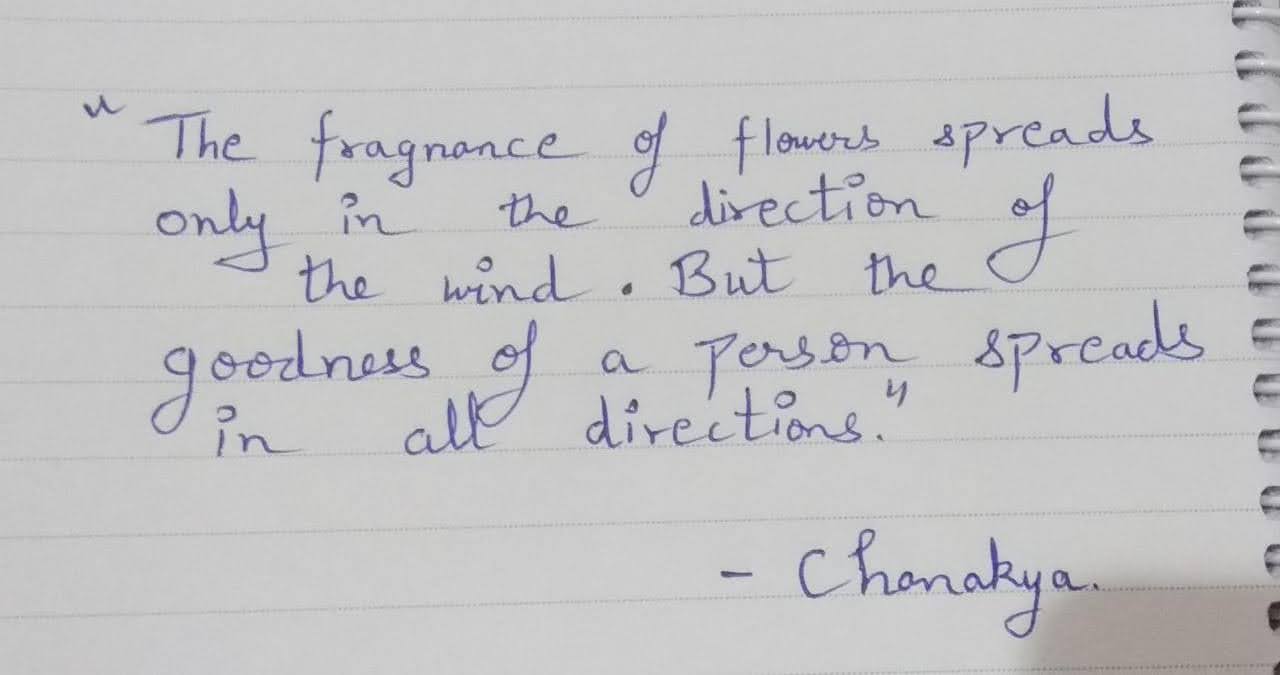 "The fragnance of flowers spreads
only in the direction of
the wind. But the
goodness of a person spreads
in all directions."
- Chanakya.